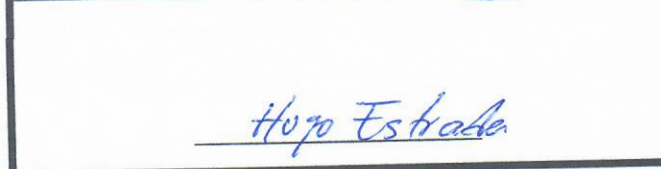 Hugo Estrada